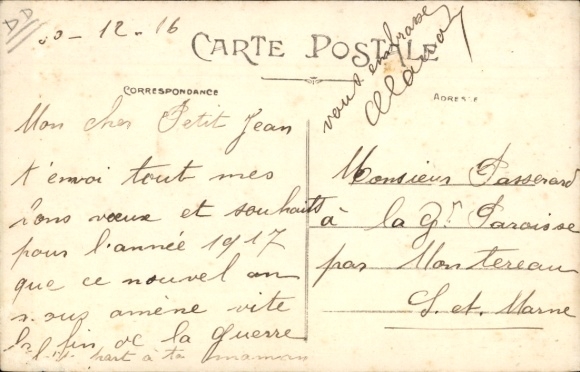 DD
30-12-16
CARTE POSTALE
CORRESPONDANCE
ADRESSE
Mon cher Petit Jean
t'envoi tout mes
bons vœux et souhaits
pour l'année 1917
que ce nouvel an
nous amène vite
la fin de la guerre
part à ta maman
vous embrasse
Monsieur Passerard
à la Gr Paroisse
par Montereau
S. et. Marne